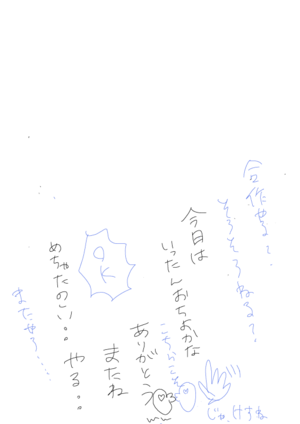 合作やる?
そろそろねる?
今日は
いったんおちよかな
こちらこそ
ありがとう
またね
じゃ、けすね
OK
めちゃたのしい…
やる…
またやろ…